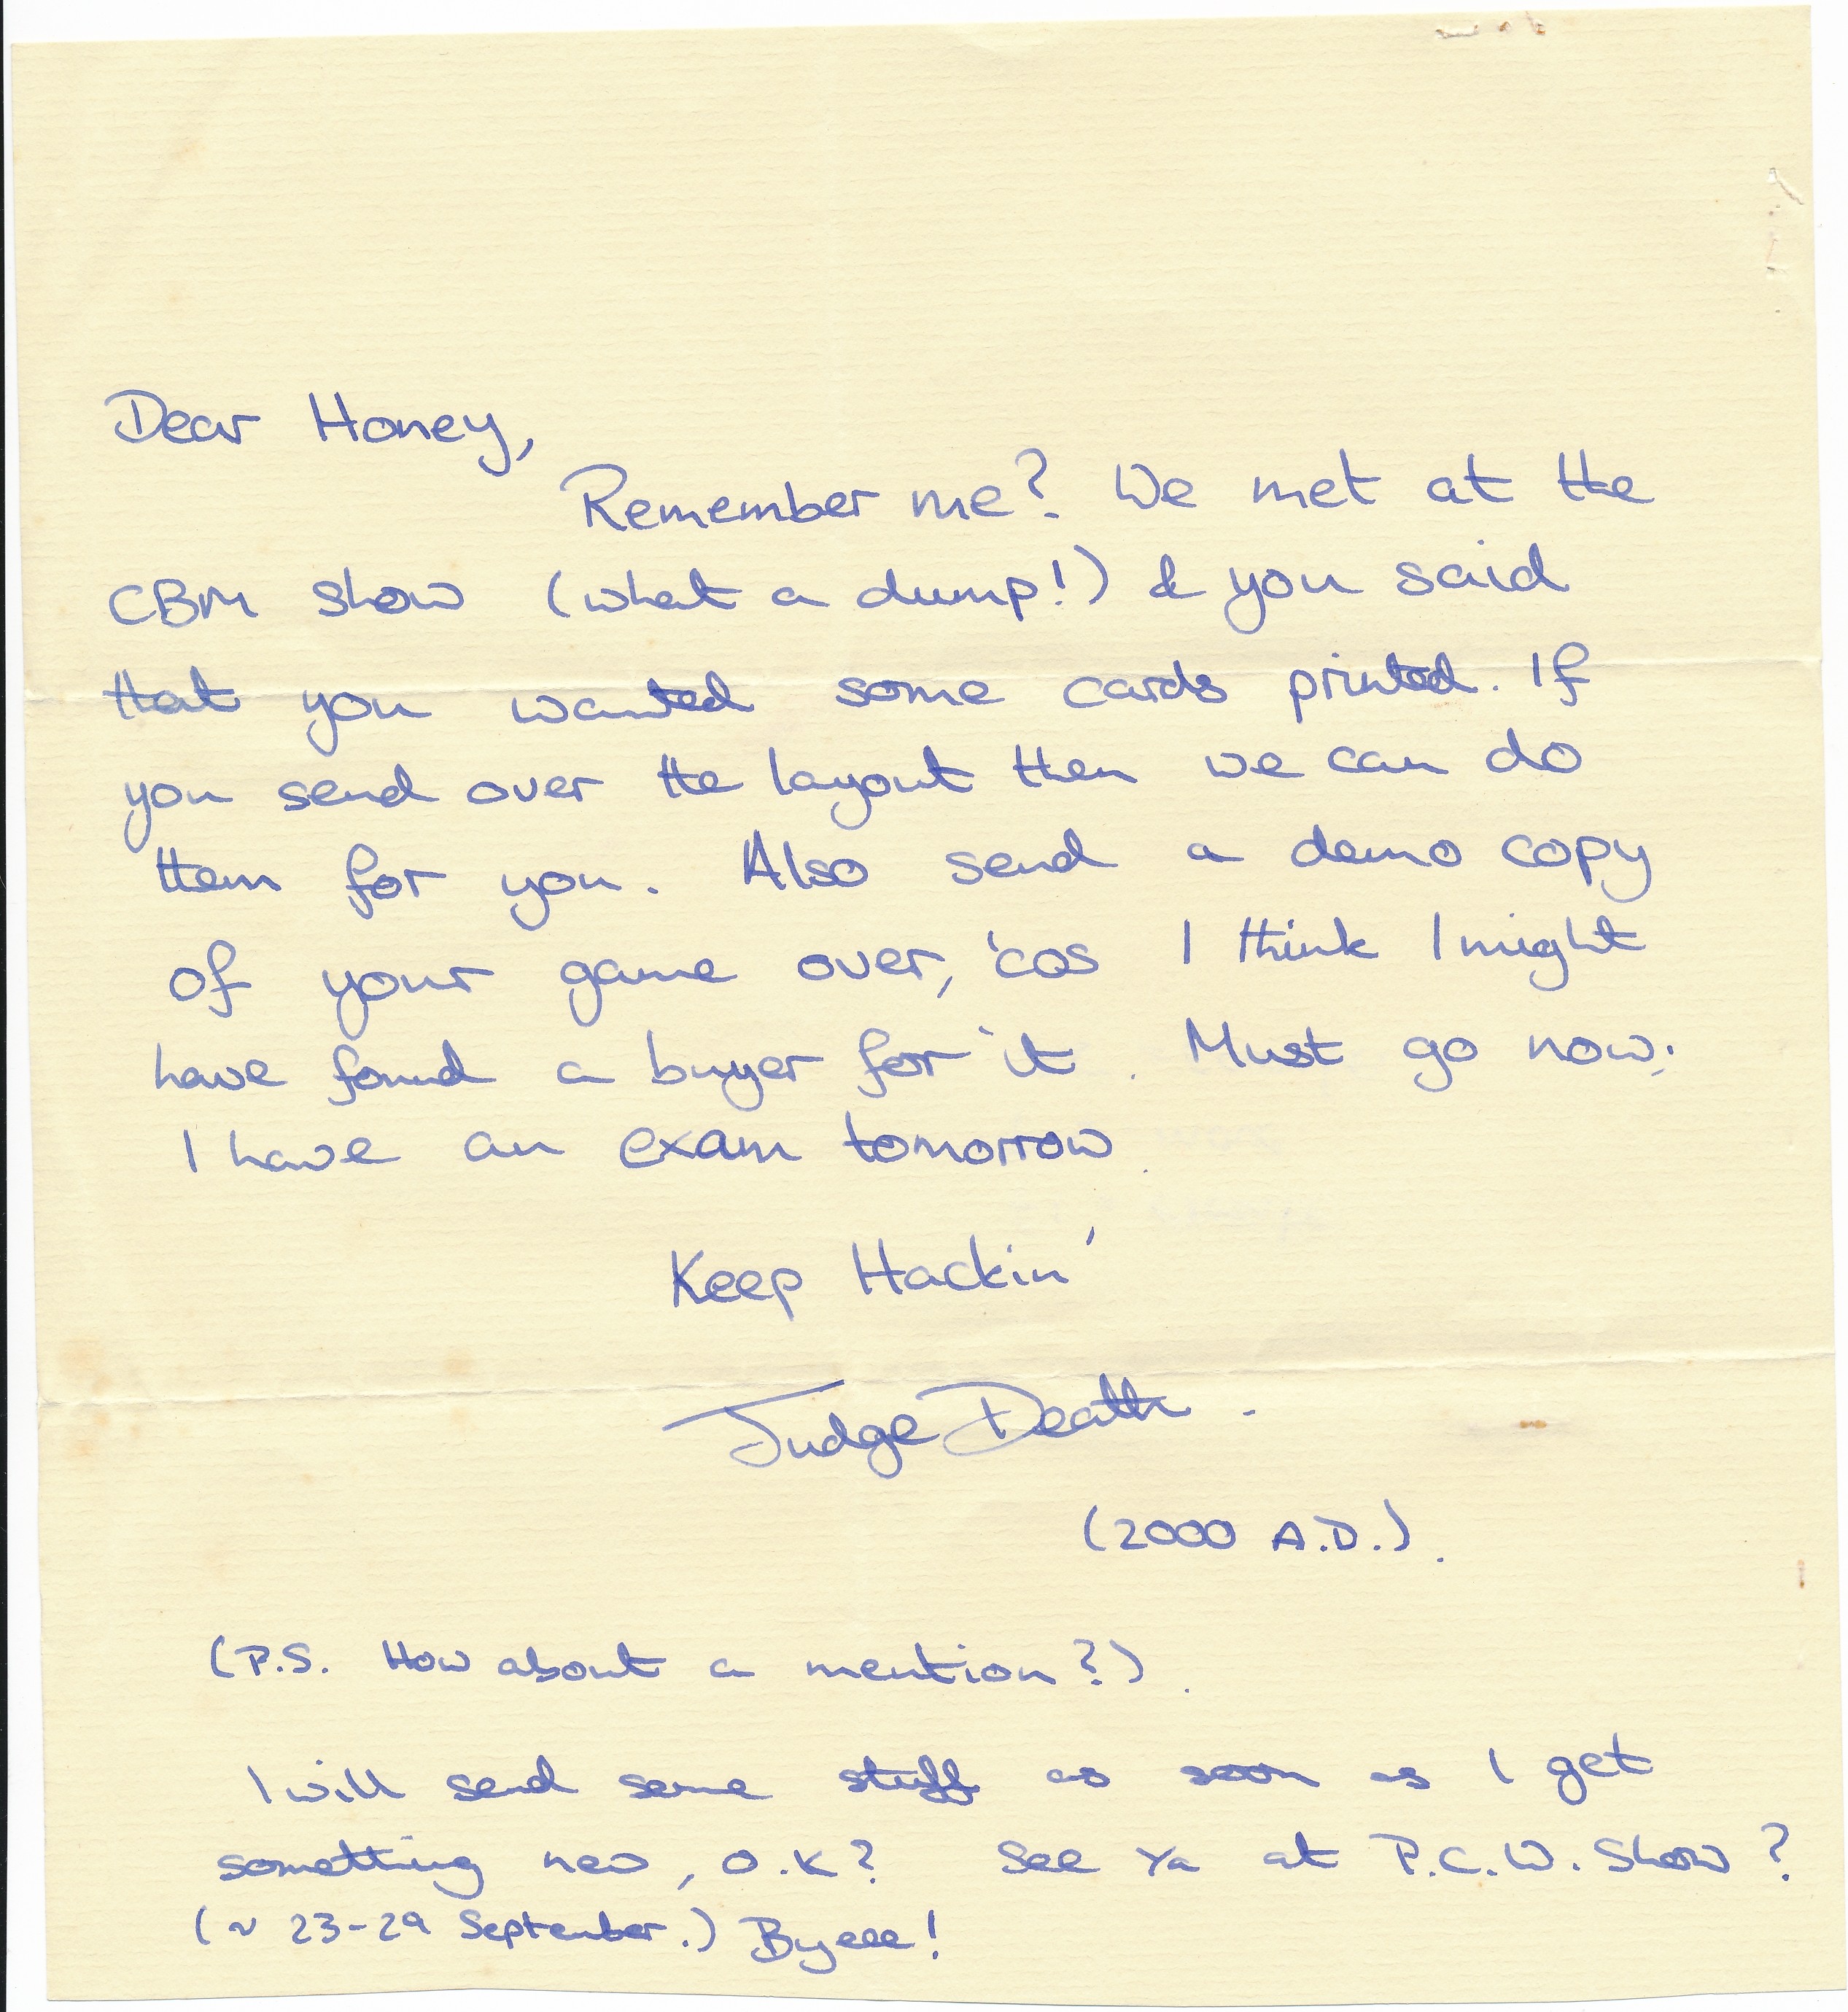 Dear Honey,
Remember me? We met at the
CBM show (what a dump!) & you said
that you wanted some cards printed. If
you send over the layout then we can do
them for you. Also send a demo copy
of your game over, 'cos I think I might
have found a buyer for it. Must go now;
I have an exam tomorrow.
Keep Hackin'
Judge Death.
(2000 A.D.).
(P.S. How about a mention?).
I will send some stuff as soon as I get
something new, O.K? See Ya at P.C.W. Show?
(~ 23-29 September.) Byeee!